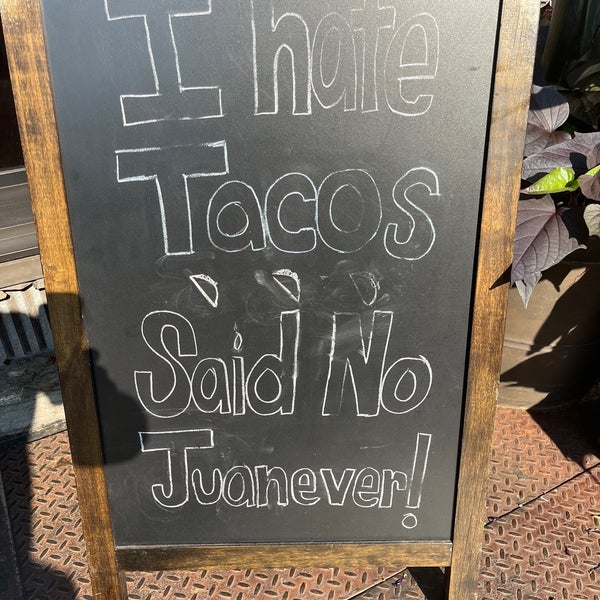 I hate
Tacos
Said No
Juanever!